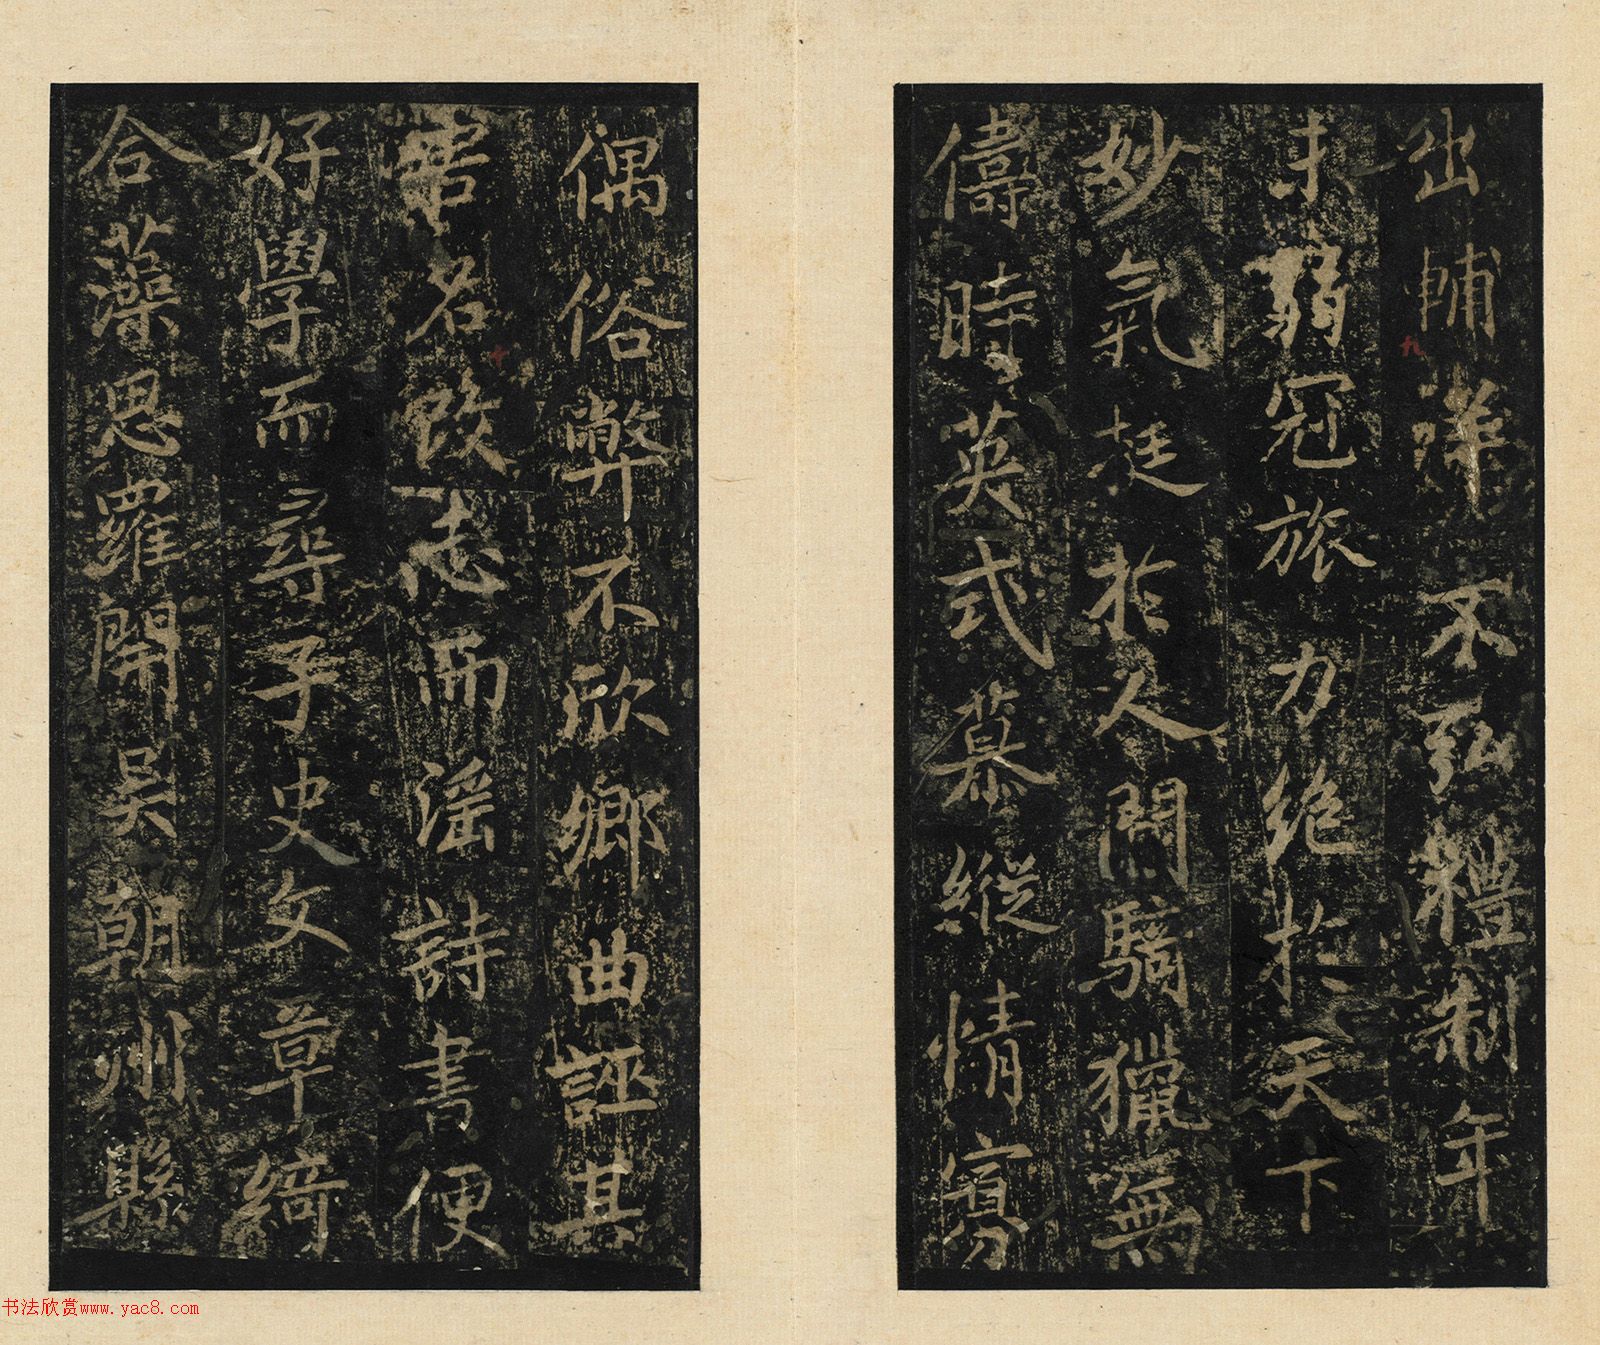 出輔嘩不弘禮制年
未弱冠旅力絕於天下
妙氣挺於人間騎獵無
儔時英式慕縱情寫
偶俗弊不欣鄉曲誣其
書名改志而滛詩書便
好學而尋子史文章綺
合藻思羅開吳朝州縣
十
九
书法欣赏www.yac8.com